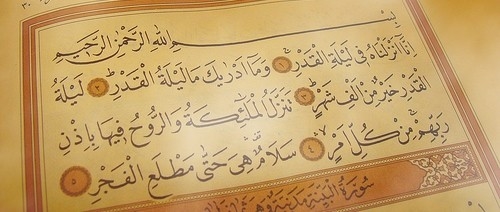 بِسْمِ اللّٰهِ الرَّحْمٰنِ الرَّحِيمِ
اِنَّا اَنْزَلْنَاهُ فِى لَيْلَةِ الْقَدْرِ ١ وَمَا اَدْرٰيكَ مَا لَيْلَةُ الْقَدْرِ ٢ لَيْلَةُ
الْقَدْرِ خَيْرٌ مِنْ اَلْفِ شَهْرٍ ٣ تَنَزَّلُ الْمَلٰٓئِكَةُ وَالرُّوحُ فِيهَا بِاِذْنِ
رَبِّهِمْ مِنْ كُلِّ اَمْرٍ ٤ سَلَامٌ هِىَ حَتّٰى مَطْلَعِ الْفَجْرِ ٥
سُورَةُ الْبَيِّنَةِ مَدَنِيَّةٌ وَهِىَ